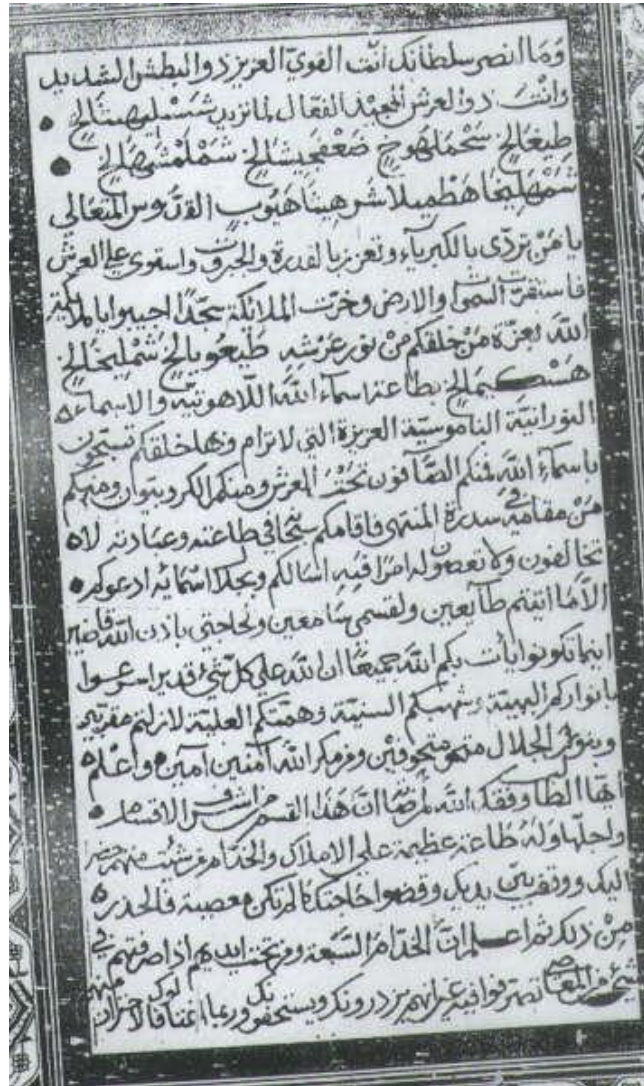 وما انصر سلطانك انت القوي العزيز ذوالبطش الشديد
وانت ذوالعرش المجيد الفعال لما تريد
طيغالخ شمهالخ
القدوس المتعالي
يا من تردّى بالكبرياء وتعزز بالقدرة والجبروت واستوى علي العرش
فاستقرت السموات والارض وخرت الملائكة سجّدًا اجيبوا يا ملائكة
الله بعزة من خلقكم من نور عرشه طيعوبالخ شمليخالخ
بطاعة اسماء الله اللاهوتية والاسماء
النورانية الناموسية العزيزة التي لا ترام وبها خلقكم تسبّحون
باسماء الله فمنكم الصّافون تحت العرش ومنكم الكروبيون ومنكم
من مقامه في سدرة المنتهى فاقامكم سبحا في طاعته وعبادته لا
تخالفون ولا تعصون له امرًا فبه اسالكم وبجلال اسمائه ادعوكم
الاّ ما اتيتم طايعين ولقسمي سامعين ولحاجتي باذن الله قاضين
اينما تكونوا يأت بكم الله جميعًا ان الله علي كل شئ قدير اسرعوا
بانواركم البهيّة وشهبكم السنيّة وهمتكم العليّة لازلتم مقربين
وبنور الجلال الله آمنين آمين واعلم
ايها الطالب وفقك الله لمرضاته ان هذا القسم من اشرف الاقسام
واجلها وله طاعة عظيمة علي الاملاك والخدّام من شئت منهم حضر
اليك ووقف بين يديك وقضوا حاجتك ما لم تكن معصية فالحذر
من ذلك ثم اعلم ان الخدّام السّبعة ومن تحت ايديهم اذا صرفتهم في
شئ من المعاصي تصرفوا فيه غير انهم يزدرونك ويستخفون بك وربما